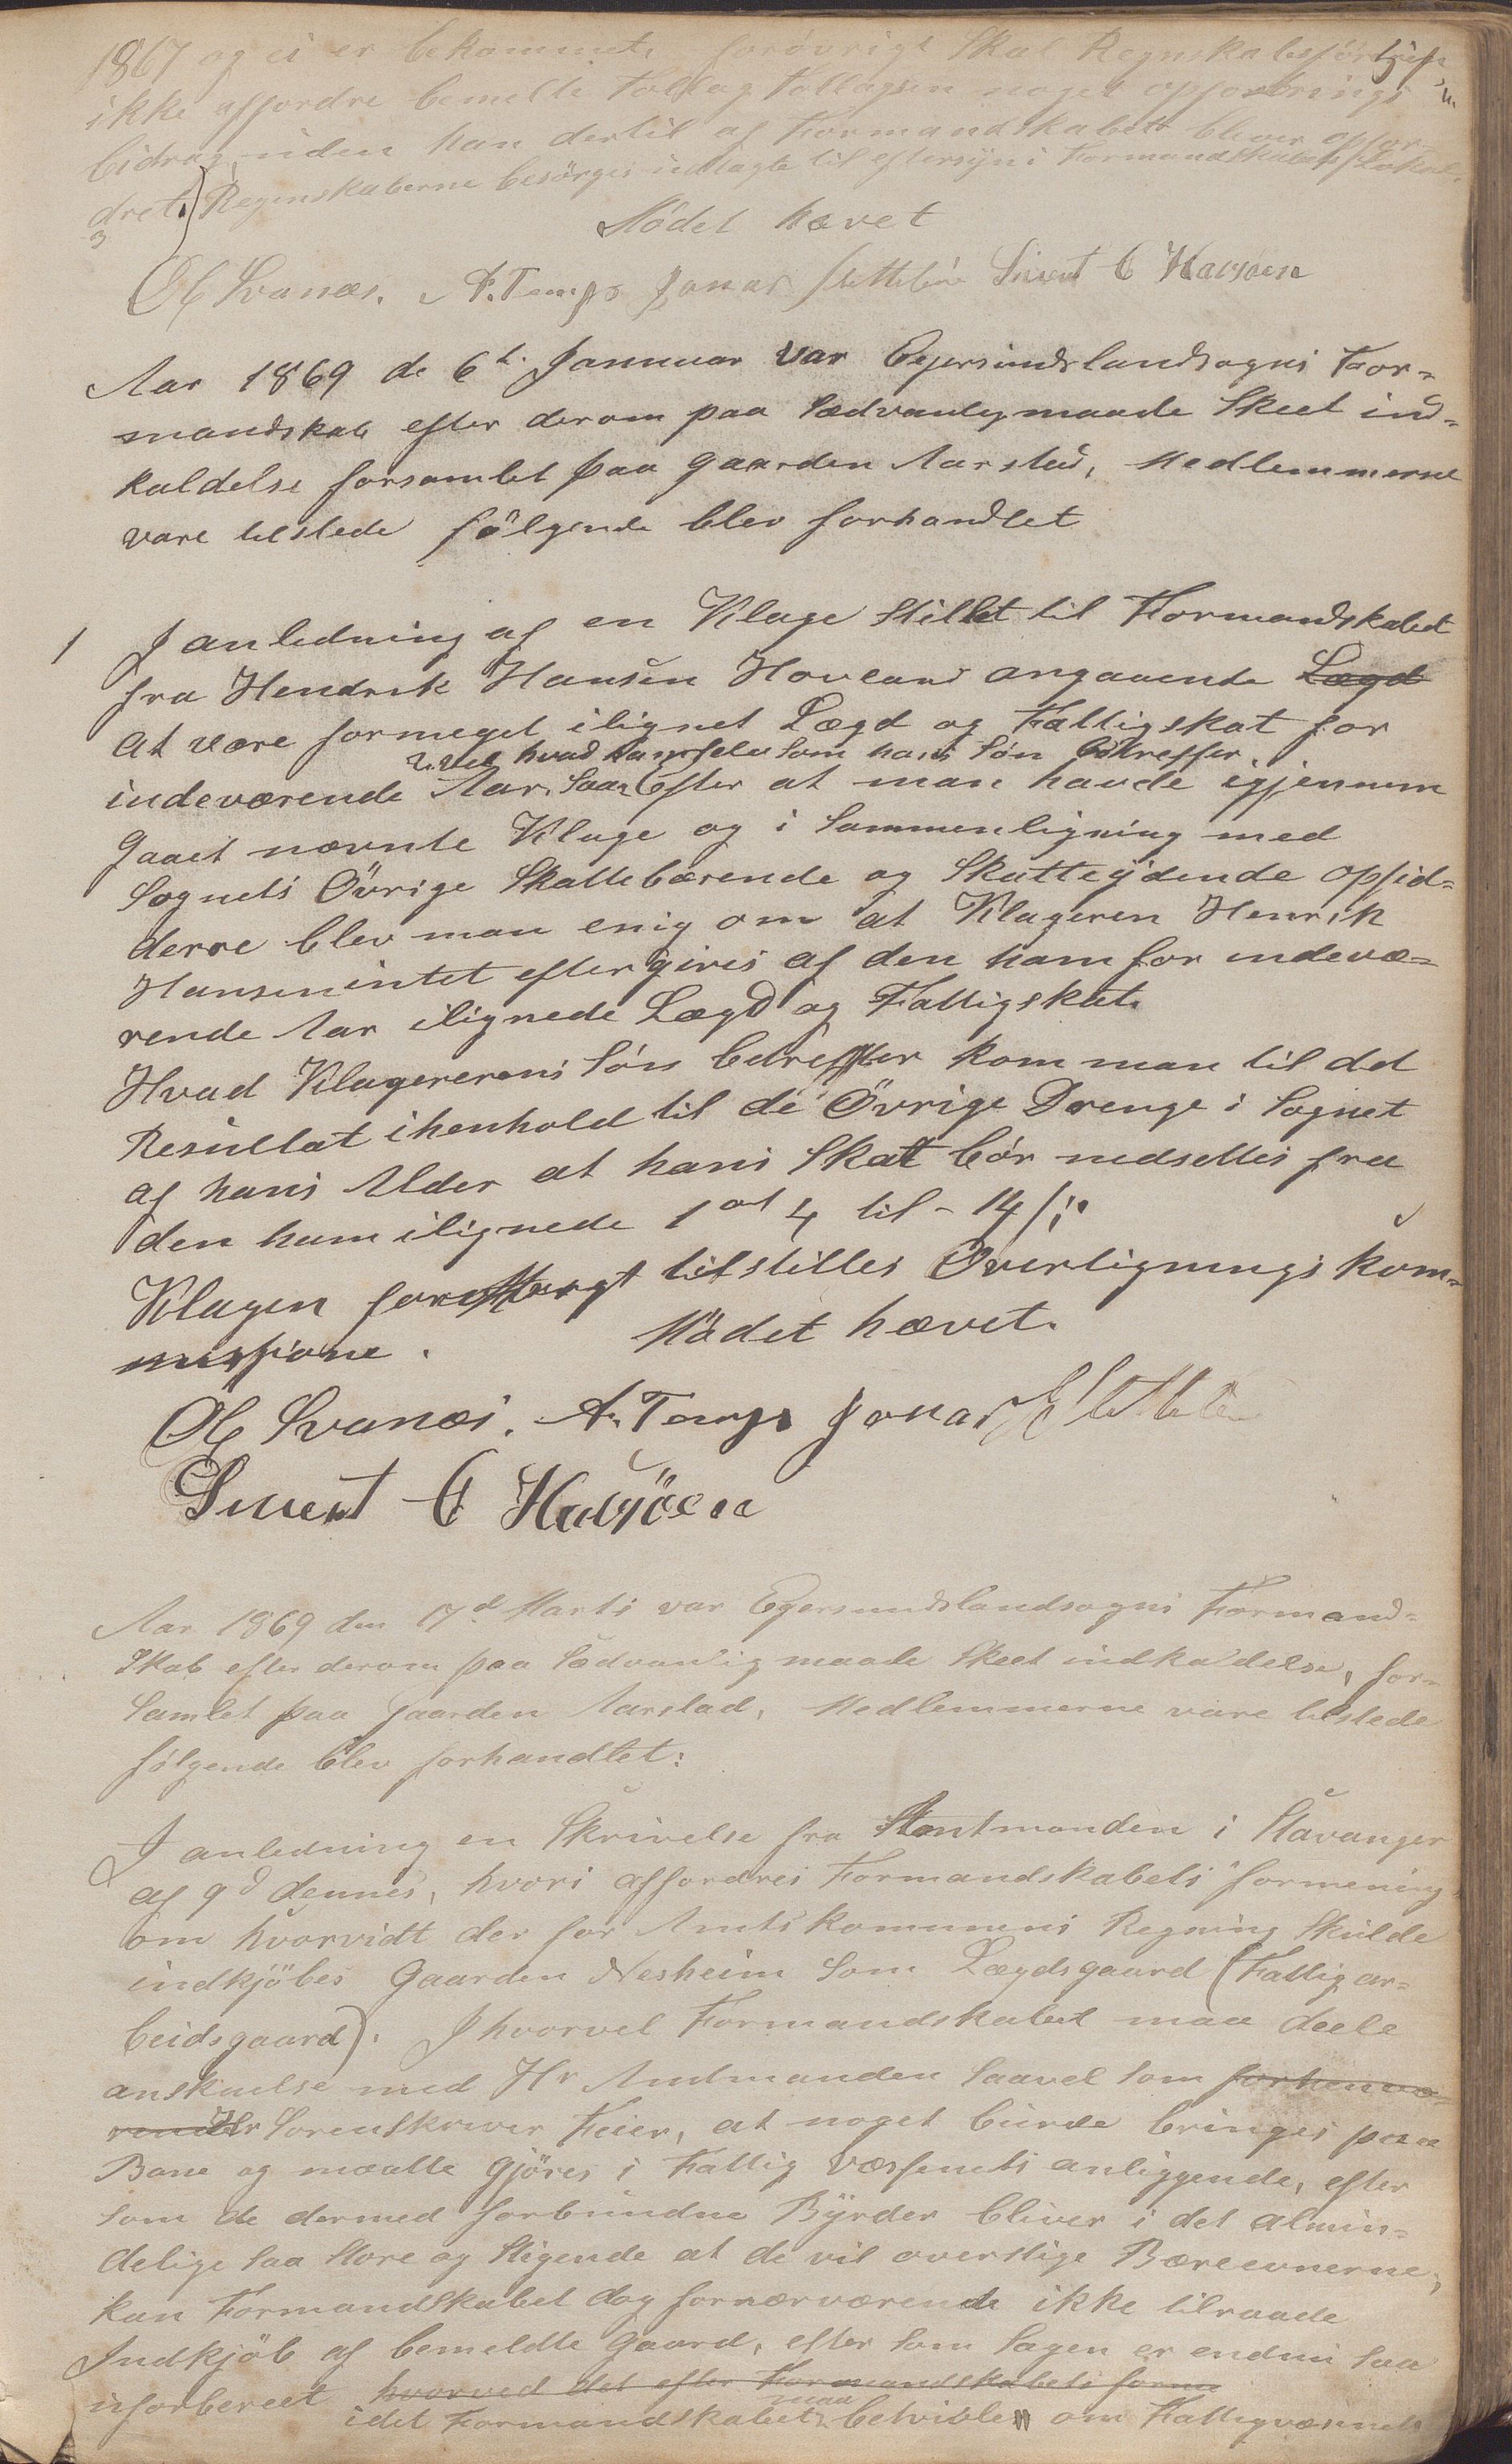 1867 og ei er bekommet, forövrigt Skal Regnskabsförer
ikke affordre bemelte Tollag Tollagsen noget opfostrings
bidrag, uden han dertil af Formandskabet bliver opfor-
dret. Regenskaberne besörges indlagte til eftersyn i Formandskabets Lokal.
3
Mödet hævet
Ol Svanæs. A. Tengs Jonas Slettebö Sivert E Havsöen
Aar 1869 de 6t. Januuar var Egersundslandsogns For-
mandskab efter derom paa Sædvanlig maade Skeet ind-
kaldelse forsamlet paa gaarden Aarstad, Medlemmerne
vare tilstede fölgende blev forhandlet
1 I anledning af en Klage stillet til Formandskabet
fra Hendrik Hansen Hovland angaaende Lægd
at være formeget ilignet Lægd og Fattigskat for
vel hvad ham selv Som hans Sön betreffer.
indeværende Aar, Saa Efter at man havde igjennem
gaaet nævnte Klage og i Sammenligning med
Sognets Övrige Skattebærende og Skatteydende opsid-
derre blev man enig om at Klageren Henrik
Hansen intet eftergives af den ham for indevæ-
rende Aar ilignede Lægd og Fattigskat.
Hvad Klagererens Sön betreffer kom man til det
Resultat i henhold til de Övrige Drenge i Sognet
af hans Alder at hans Skat bör nedsettes fra
den ham ilignede 1 ort 4 til - 14 s;
Klagen tilstilles Overlignings kom-
missione. Mödet hævet.
Ol Svanæs. A. Tengs Jonas Slettebö
Sivert E Havsöen
Aar 1869 den 17d Marts var Egersundslandsogns Formand-
Skab efter derom paa Sædvanlig maade Skeet indkaldelse, for-
Samlet paa Gaarden Aarstad, Medlemmerne vare tilstede
fölgende blev forhandlet:
I anledning en Skrivelse fra Amtmanden i Stavanger
af 9d dennes, hvori affordres Formandskabets formening
om hvorvidt der for Amtskommunens Regning Skulde
indkjöbes Gaarden Nesheim Som Lægdsgaard (Fattigar-
beidsgaard). Ihvorvel Formandskabet maa deele
anskuelse med Hr Amtmanden Saavel Som forhenvæ-
rende Hr Sorenskriver Feier, at noget burde bringes paa
Bane og maatte gjöres i Fattig Væsenets anliggende, efter
Som de dermed forbundne Byrder bliver i det almin-
delige Saa Store og Stigende at de vil overstige Bæreevnerne,
kan Formandskabet dog fornærværende ikke tilraade
Indkjöb af bemeldte Gaard, efter Som Sagen er endnu Saa
uforbereet hvorved det efter Formandskabets form
idet Formandskabet maa betvivle om Fattigvæsnets